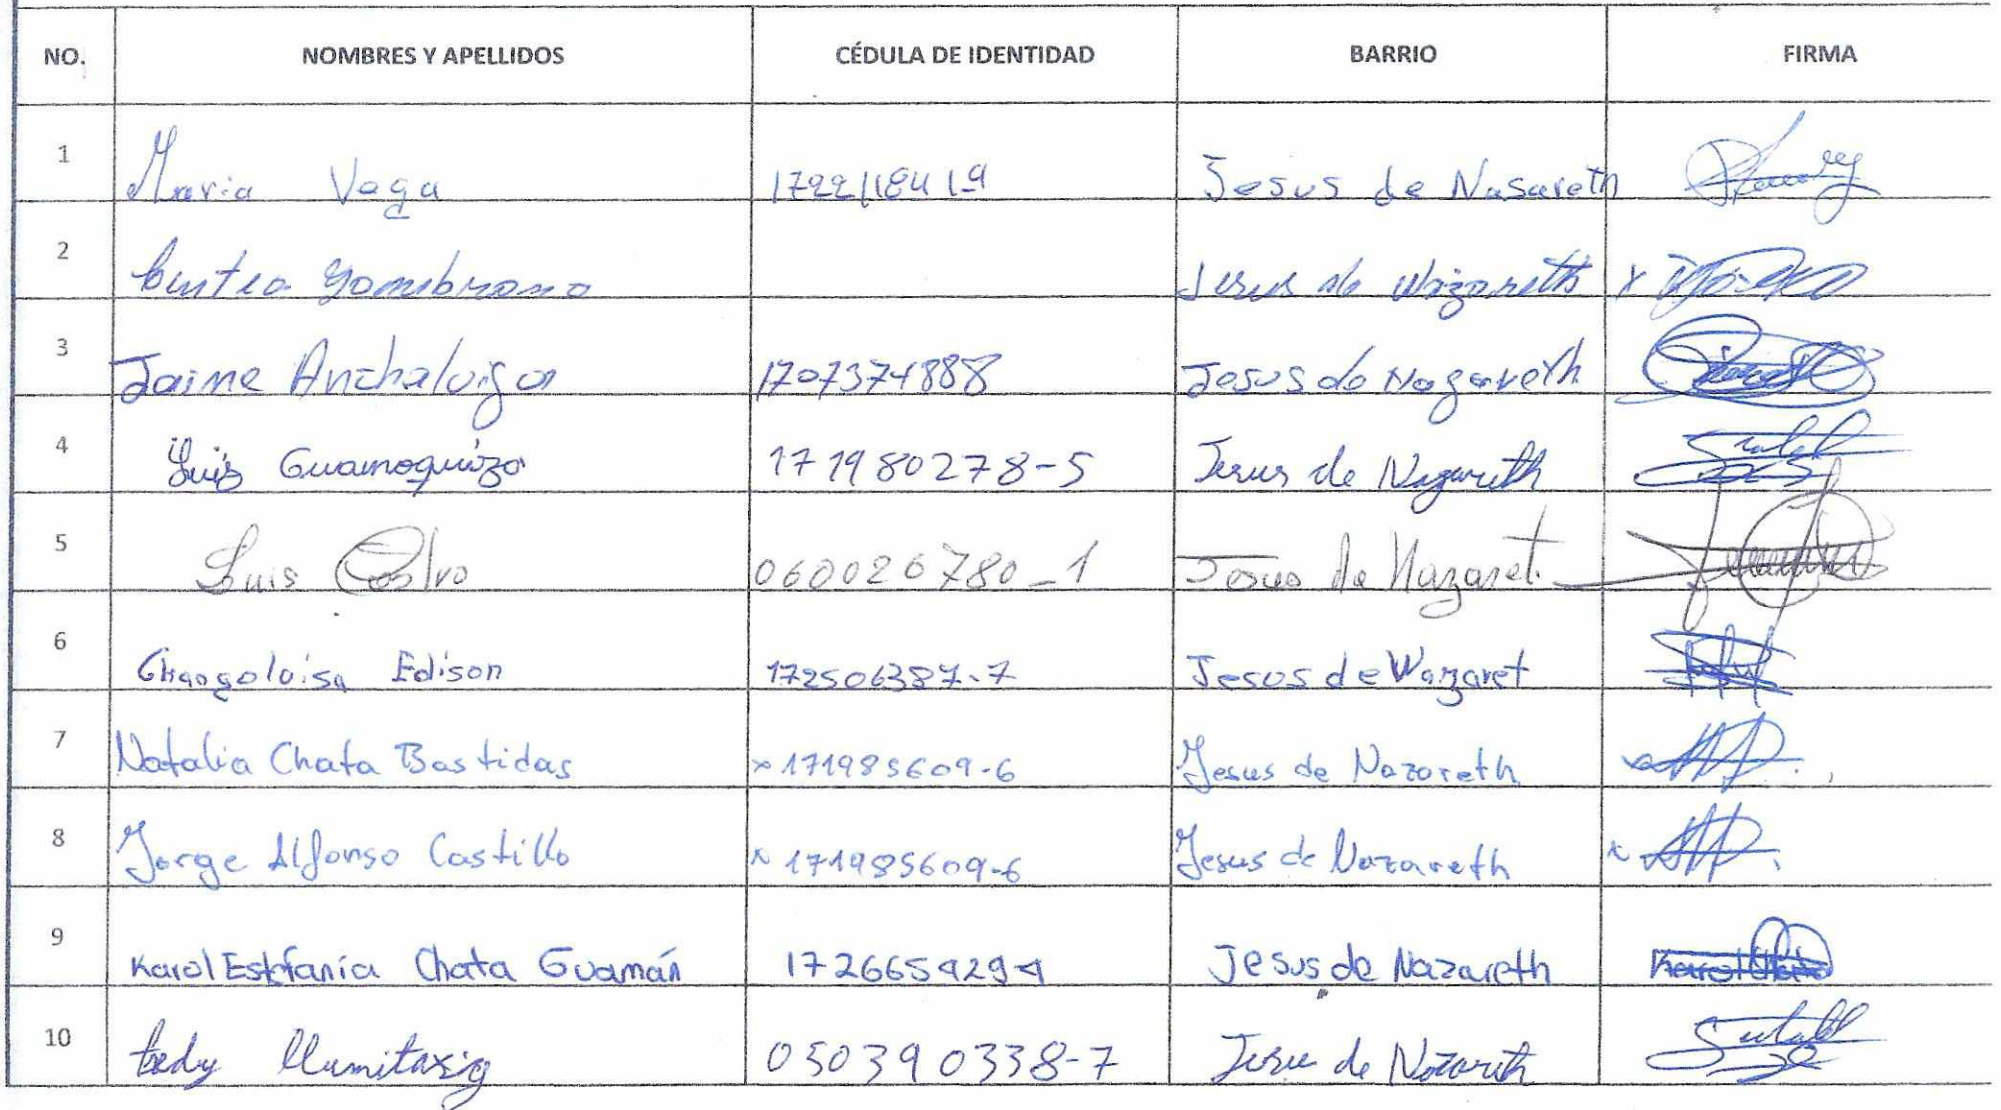 NO. NOMBRES Y APELLIDOS CÉDULA DE IDENTIDAD BARRIO FIRMA
1 Maria Vega 1722118419 Jesus de Nasareth
2 Jesus de Nazareth
3 Jaime Anchaluisa 1707374888 Jesus de Nazareth
4 Luis Guamoquizo 171980278-5 Jesus de Nazareth
5 Luis Calvo 060026780-1 Jesus de Nazaret
6 Changoloisa Edison 172506387-7 Jesus de Nazaret
7 Natalia Chata Bastidas x 171985609-6 Jesus de Nazareth
8 Jorge Alfonso Castillo x 171985609-6 Jesus de Nazareth x
9 Karol Estefanía Chata Guamán 1726659294 Jesus de Nazareth Karol Chata
10 tedy llumitaxig 050390338-7 Jesus de Nazareth